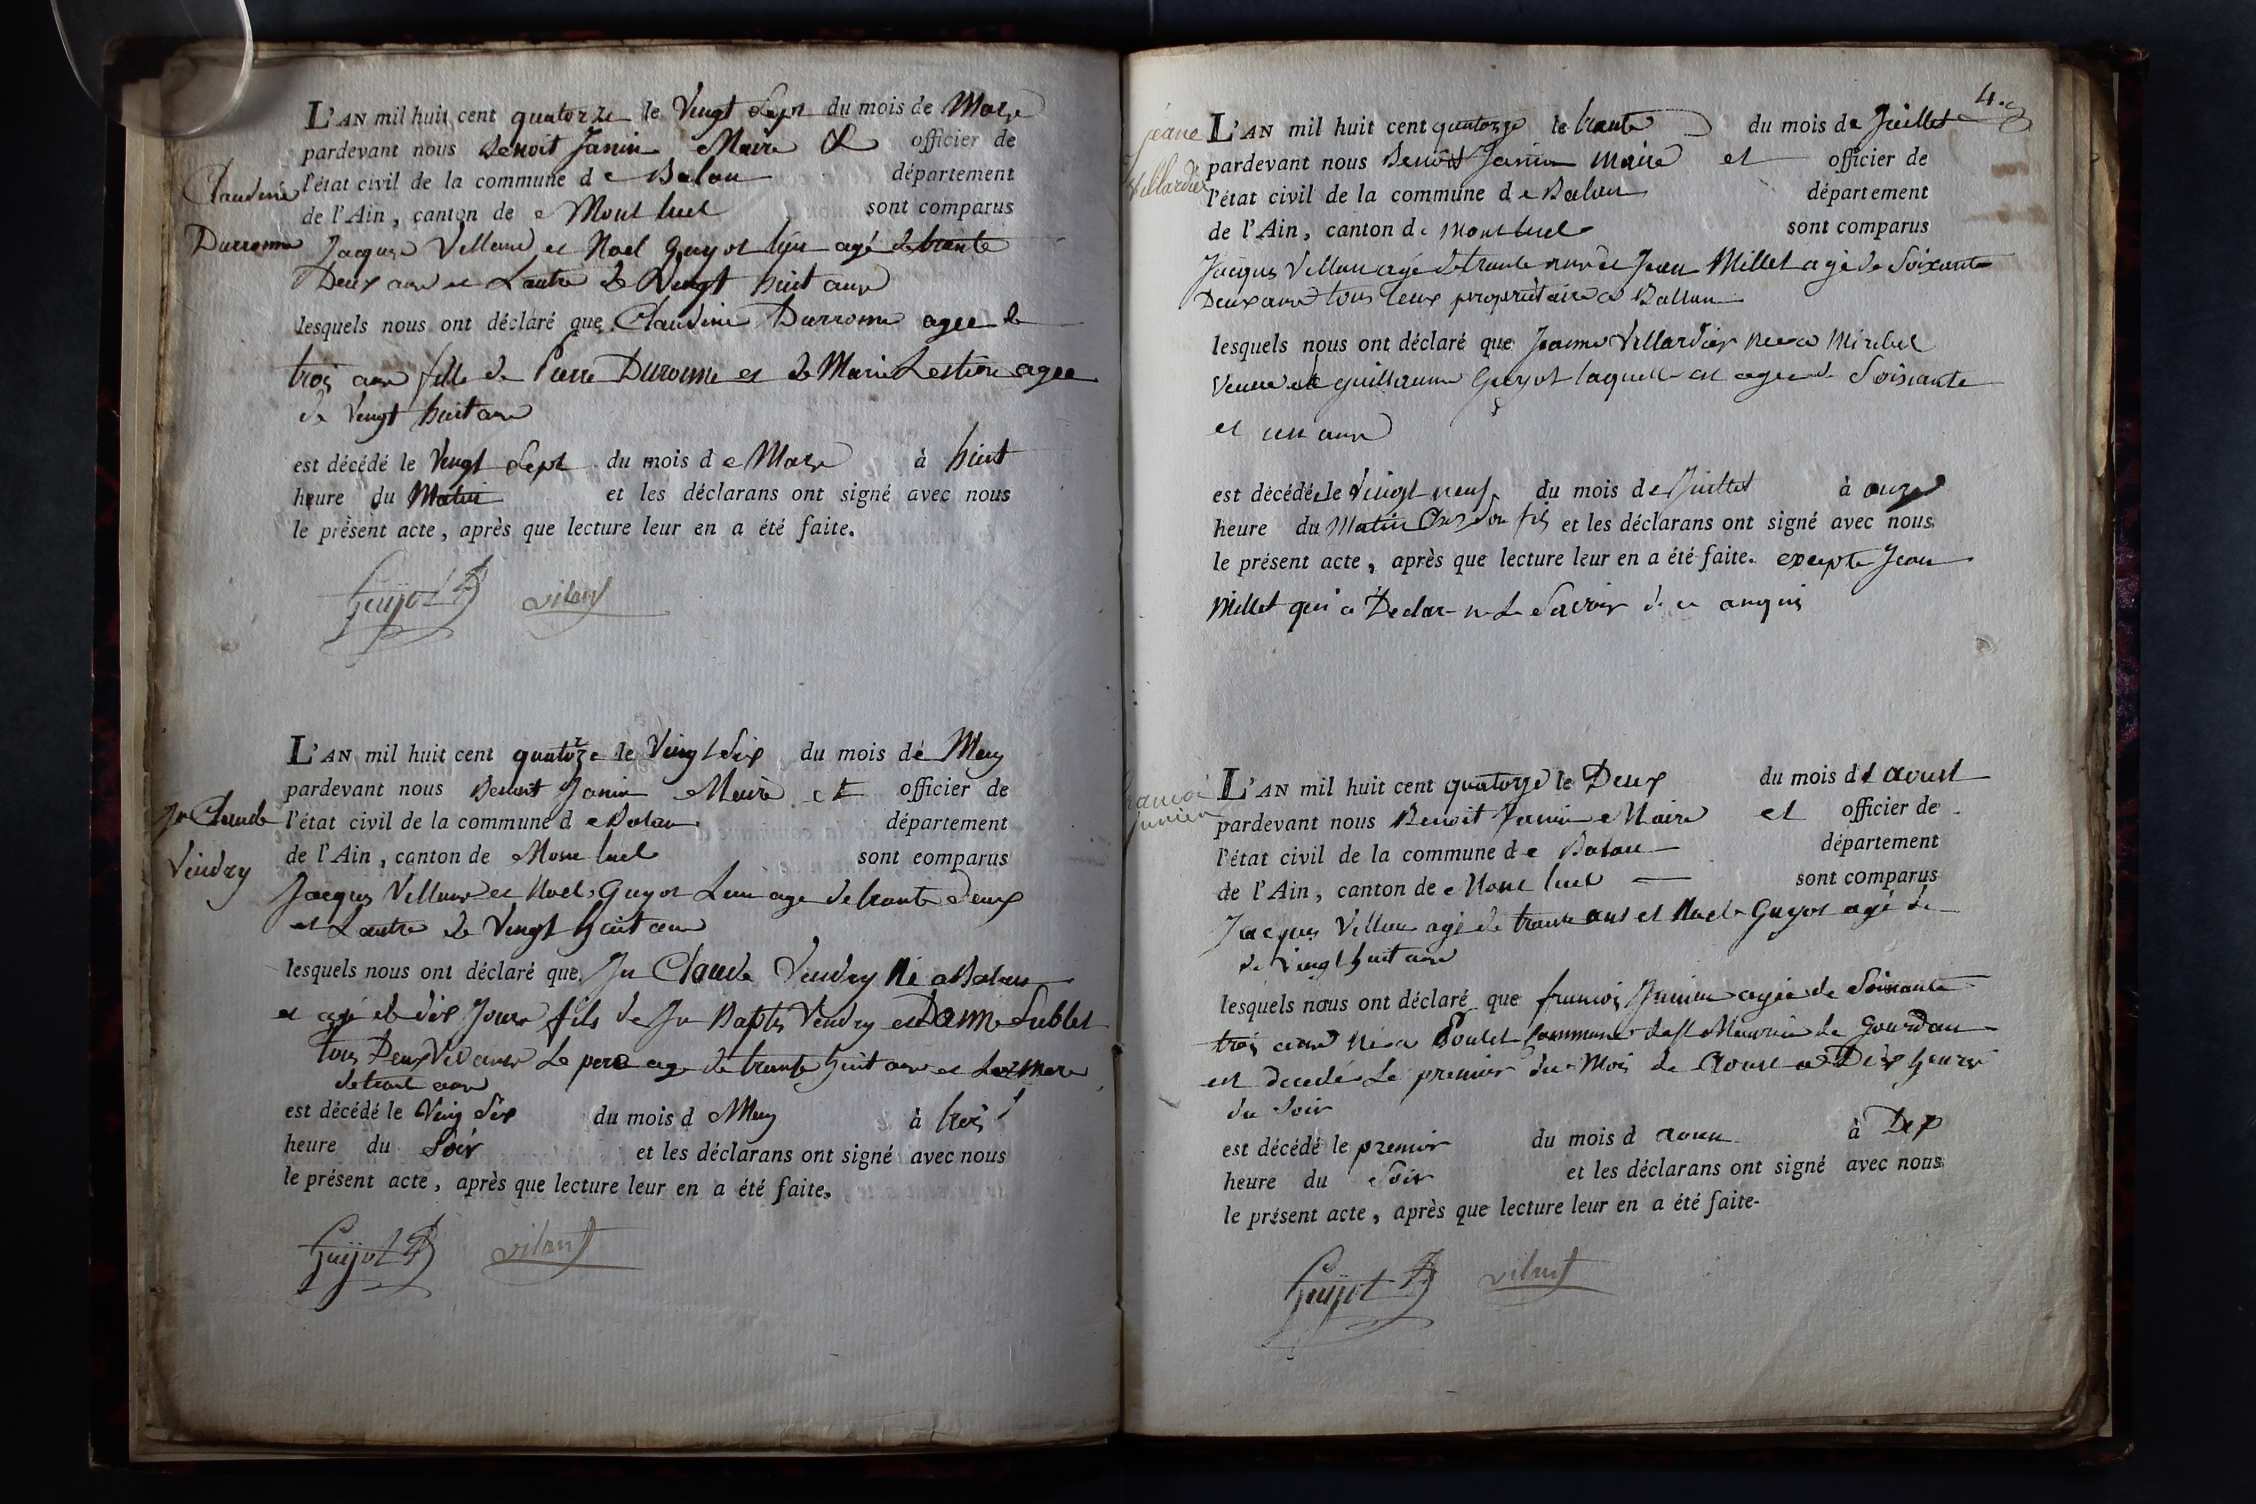 L'AN mil huit cent quatorze le Vingt Sept du mois de Mars
pardevant nous Benoit Janin Maire & officier de
Claudine
l'état civil de la commune de Balan département
de l'Ain, canton de Mont luel sont comparus
Durronne
Jacques Villam et Noel Guyot l'un agé de trante
Deux ans et Lautre de Vingt huit ans
lesquels nous ont déclaré que Claudine Durronne agee de
trois ans fille de Pierre Duronne et de Marie agee
de Vingt huit ans
est décédé le Vingt Sept du mois de Mars à huit
heure du Matin et les déclarans ont signé avec nous
le présent acte, après que lecture leur en a été faite.
Guyot vilant
L'AN mil huit cent quatorze le Vingt Six du mois de May
pardevant nous Benoit Janin Maire et officier de
Jn Claude
l'état civil de la commune de Balan département
de l'Ain, canton de Mont luel sont comparus
Vendry
Jacques Villam et Noel Guyot Lun age de trante Deux
et Lautre de Vingt huit ans
lesquels nous ont déclaré que Jn Claude Vendry Né a Balan
et agé de dix Jours fils de Jn Baptis Vendry et Danne Sublet
tous Deux Vivans Le pere age de trante huit ans et La mere
de trant ans
est décédé le Ving Six du mois d May à trois
heure du Soir et les déclarans ont signé avec nous
le présent acte, après que lecture leur en a été faite.
Guyot vilant
4.
jeane
L'AN mil huit cent quatorze le trante du mois de Juillet
pardevant nous Benoit Janin Maire et officier de
Villardier
l'état civil de la commune de Balan département
de l'Ain, canton de Mont luel sont comparus
Jacques Villan agé de trante ans et Jean Millet agé de Soixante
Deux ans tous Deux propriétaire a Ballan
lesquels nous ont déclaré que Jeanne Villardier nee a Miribel
Veuve de guillaume Guyot laquelle est agee de Soixante
et un ans
est décédée le Vingt neuf du mois de Juillet à onze
heure du Matin Chez Son fils et les déclarans ont signé avec nous
le présent acte, après que lecture leur en a été faite. excepte Jean
Millet qui a Declar ne Le Savoir de ce anquis
L'AN mil huit cent quatorze le Deux du mois d'aoust
francois
pardevant nous Benoit Janin Maire et officier de
Junien
l'état civil de la commune de Balan département
de l'Ain, canton de Mont luel sont comparus
Jacques Villan agé de trante ans et Noel Guyot agé de
de Vingt huit ans
lesquels nous ont déclaré que francois Junien agée de Soixante
trois ans Né a Poulet Commune de St Maurice de Gourdan
est decedé Le premier du Mois de Aoust a Dix heures
du Soir
est décédé le premier du mois d aoust à Dix
heure du Soir et les déclarans ont signé avec nous
le présent acte, après que lecture leur en a été faite.
Guyot vilant